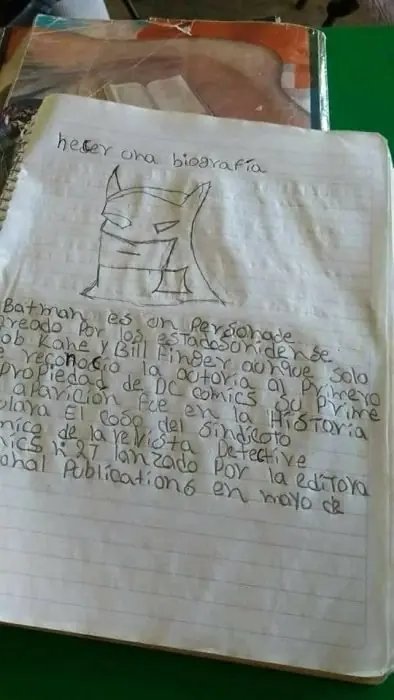 hecer una biografía
Batman es un personade
creado por los estadosunidense
ob Kane y Bill Finger aunque solo
e reconocio la autoria al Primero
propiedad de DC comics su prime
aparicion fue en la Historia
ulara El caso del sindicato
mico de la revista Detective
mics N 27 lanzado por la editora
onal Publications en mayo de